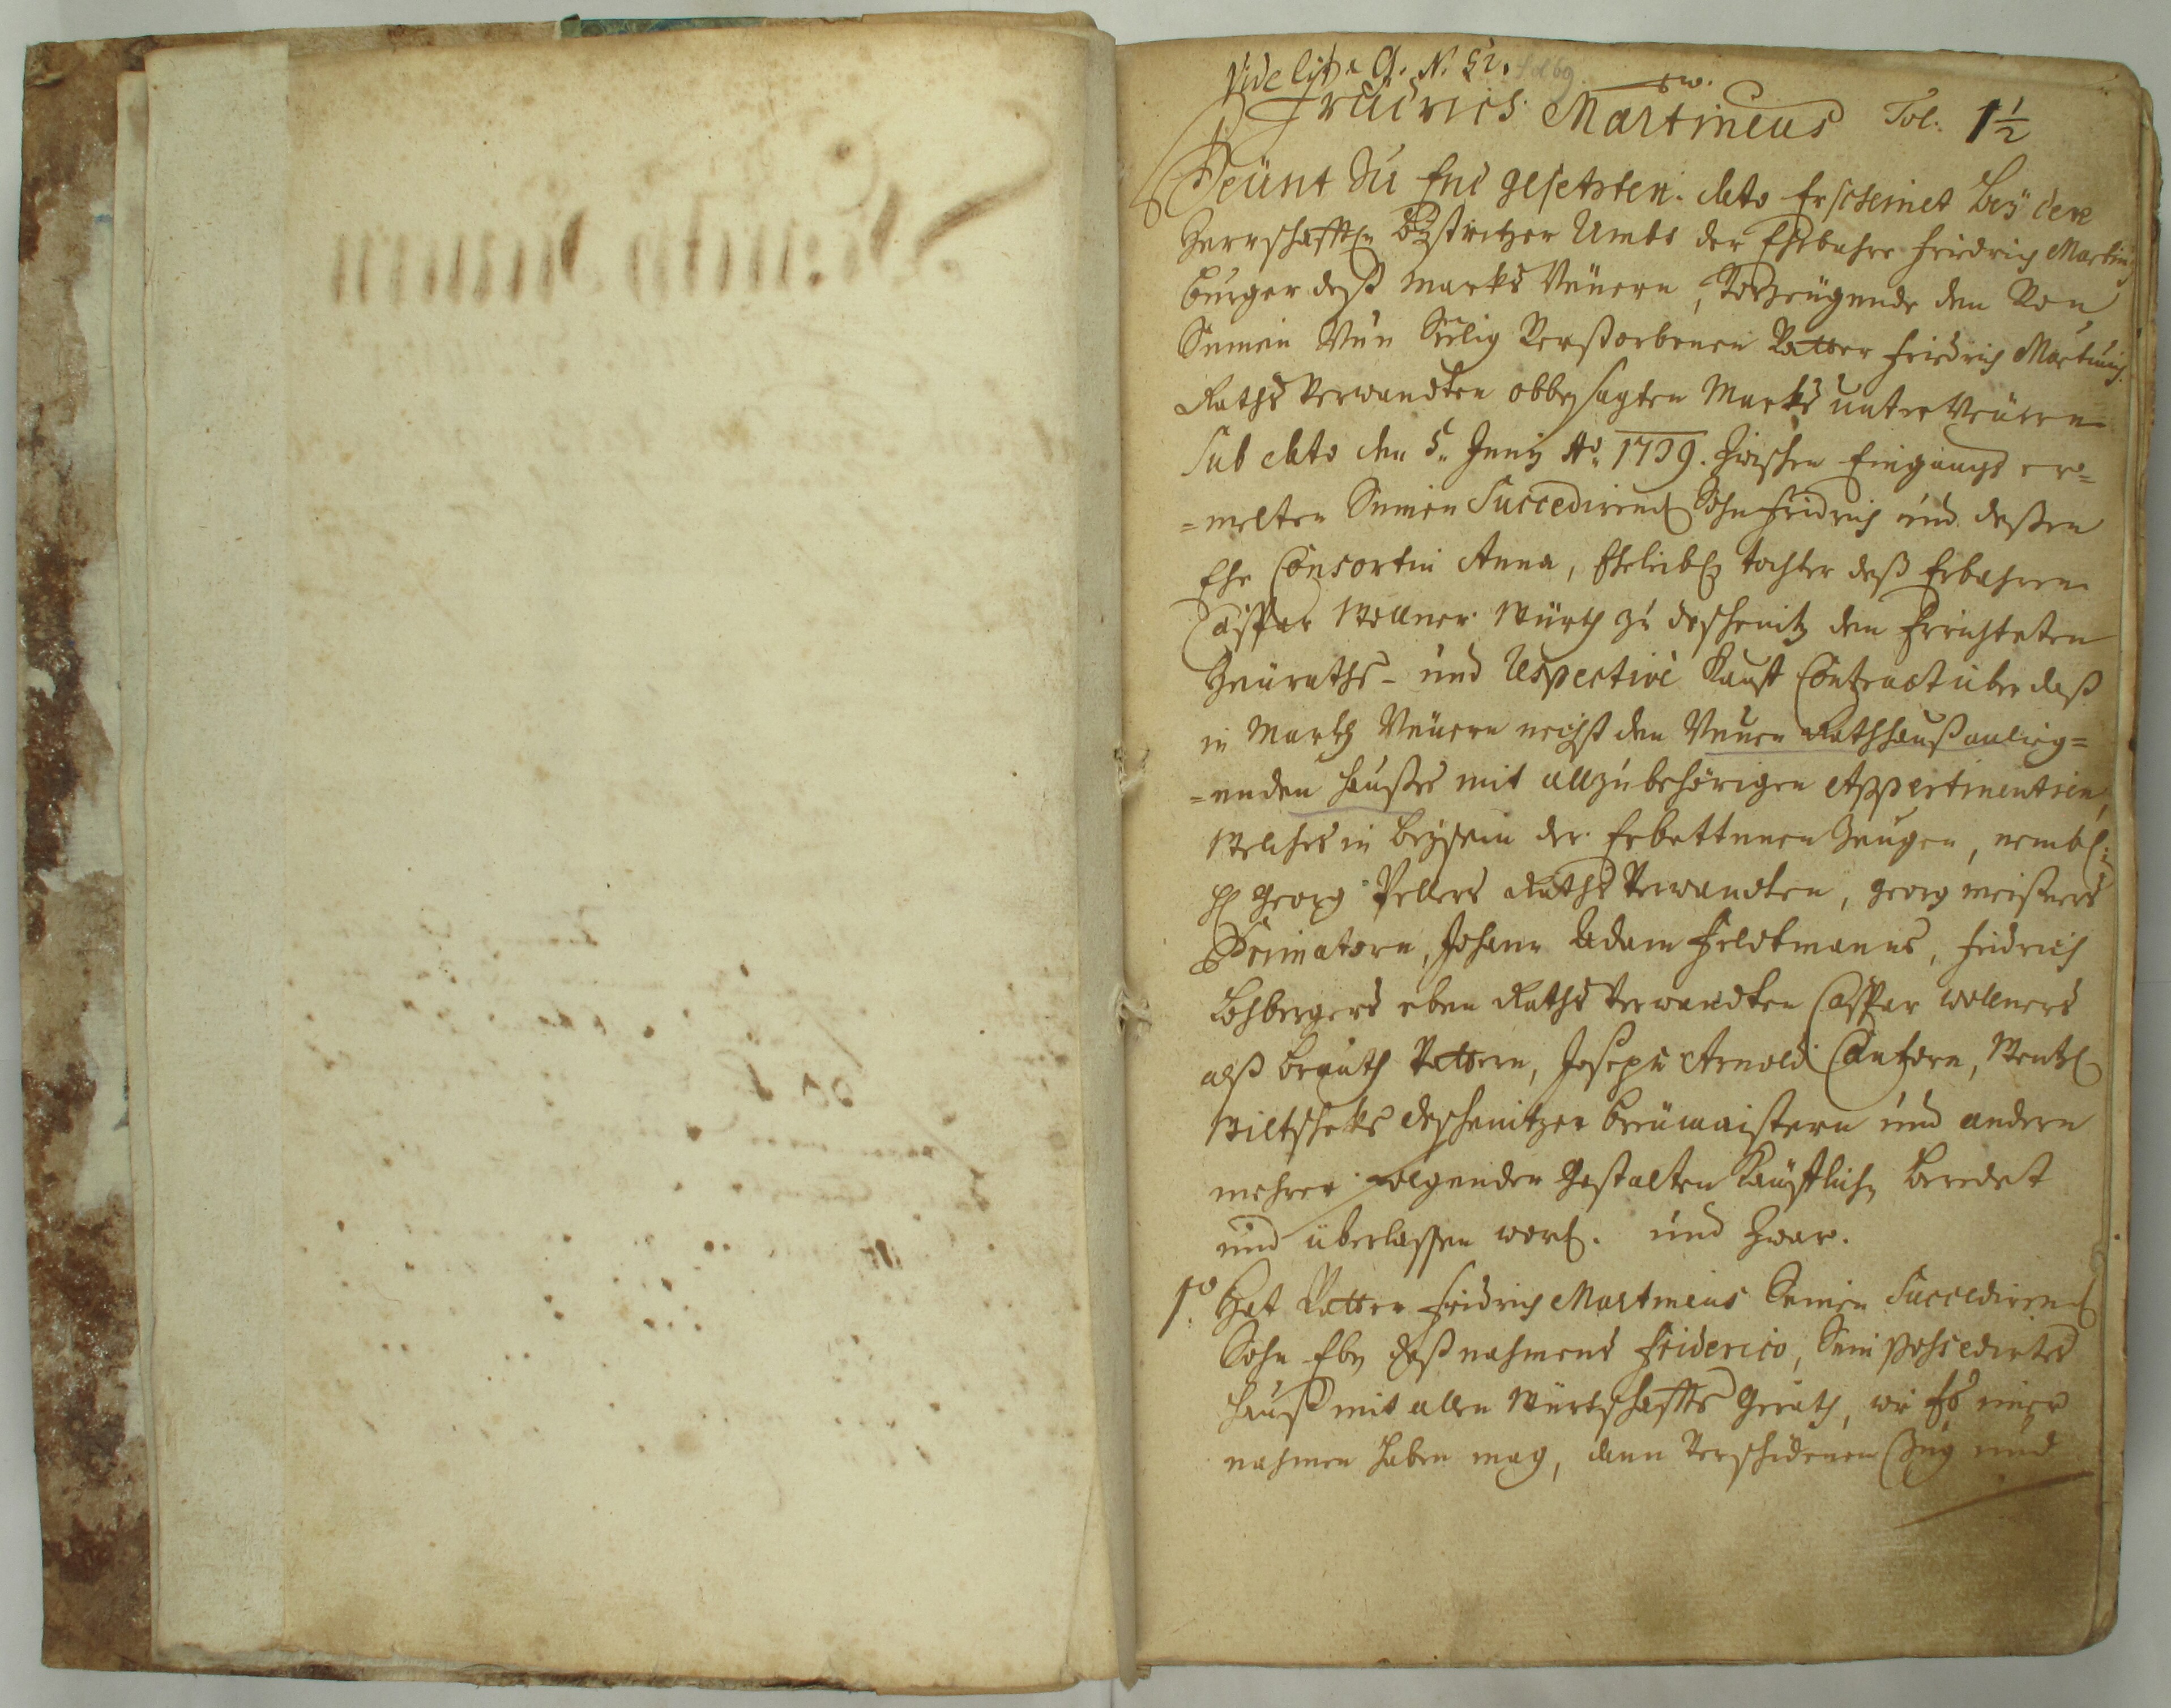 Vide lib: A. N. 52. fol 69.
Fridrich Martineus Fol: 1½
Heünt Zu End gesetzten dato Erscheinet Beÿ dem
Herrschafftl Bÿstritzer Ambt der Ehrbahre Fridrich Martin
burger deß Markts Neüern, Vorzeügende den Von
Seinen Nun Seelig Verstorbenen Vattern Fridrich Martinei
Raths Verwandten obbesagten Markts unter Neüern
Sub dato den 5. Junÿ Ao 1739. Zwischen Eingangs er=
=melten Seinen Succedirend Sohn Fridrich und deßen
Ehe Consortin Anna, Eheleibl Tochter deß Erbahren
Caspar Wellner Würth zu deschenitz den Errichteten
Heüraths- und Respective Kauff Contract über daß
in Markt Neüern nechst den Neuen Rathhauß anlieg=
=enden Haußes mit all zubehörigen Appertinentien,
Welches in beÿsein der Erbettenen Zeugen, nembl:
H Georg Pellers Raths Verwandten, Georg Meisners
Primatorn, Johann Adam Feldtmanns, Fridrich
Lohbergers eben Raths Verwandten Caspar Wellners
alß brauth Vattern, Joseph Arnold Cantorn, Wentzl
Wiltscheks deschenitzer breümaistern und andern
mehrer folgender Gestalten Kaüfflich beredet
und überlassen word. und Zwar.
1o Hat Vatter Fridrich Martineus Seinen Succedirend
Sohn Eben deß nahmens Friderico, Sein possedirtes
Hauß mit allen Würtschaffts Geräth, wie Es imer
nahmen haben mag, dann Verschidenen Zug und